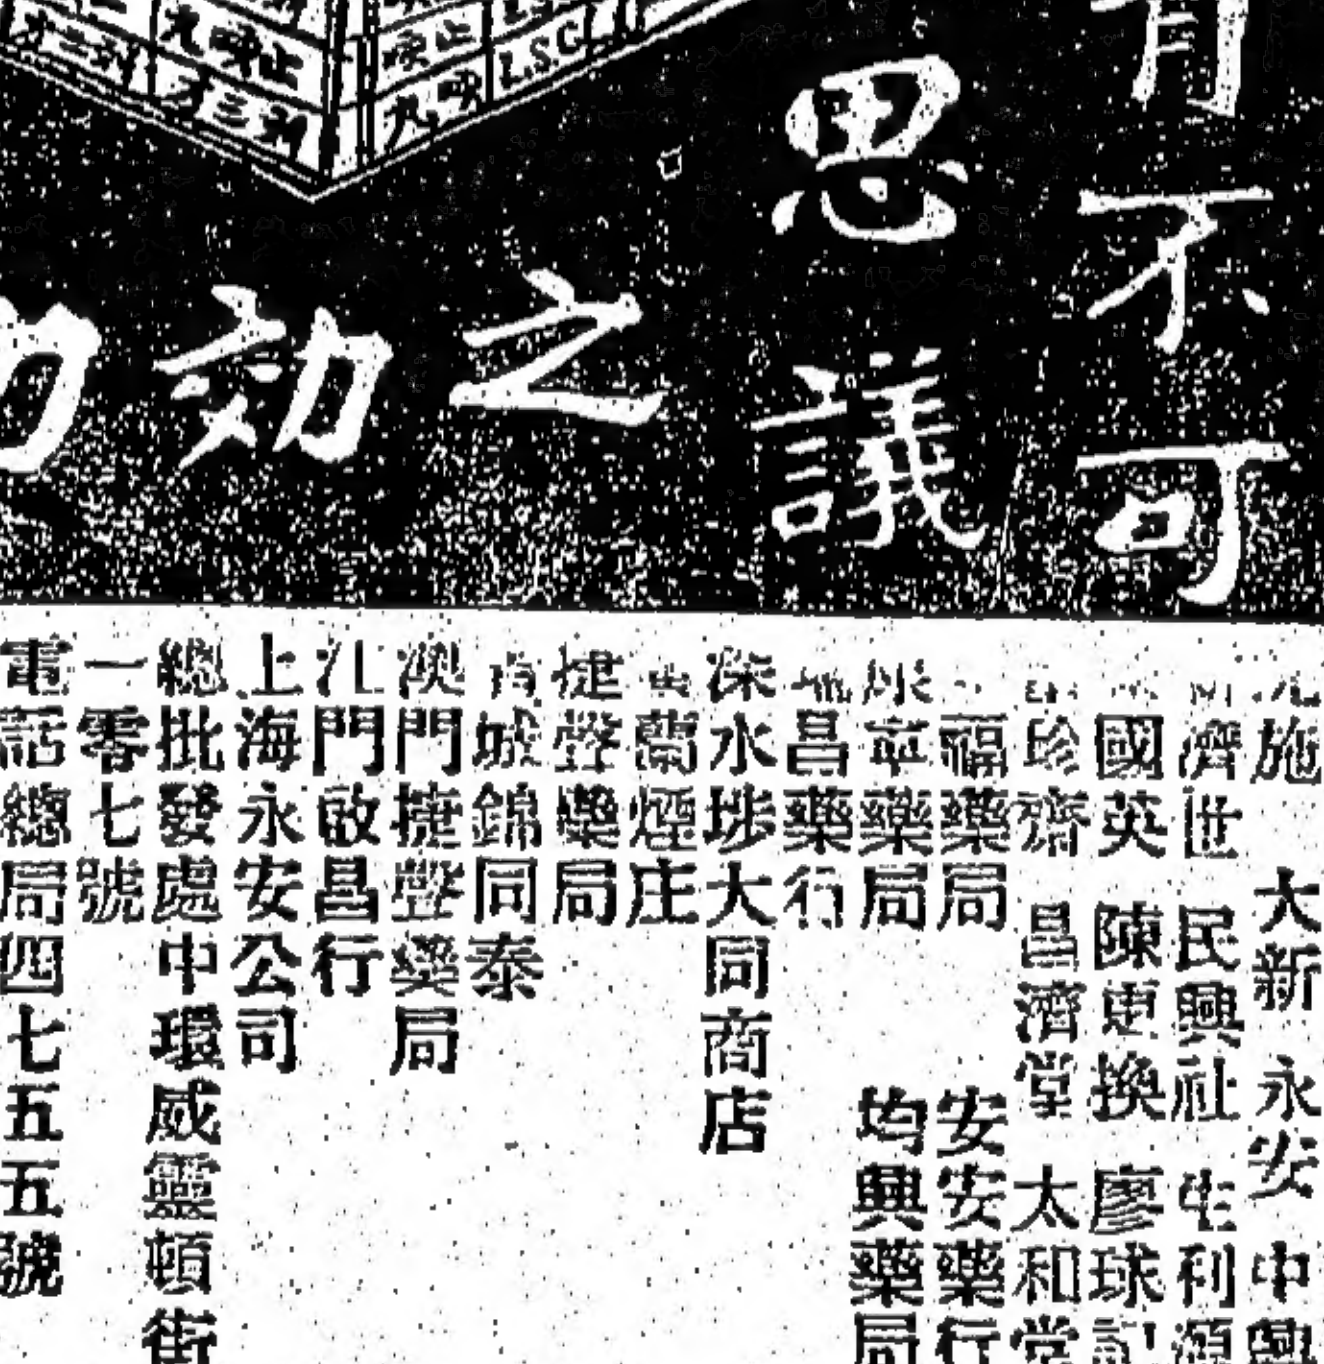 有不可
思議
之
効
力
九嗅止
L.S.C.
施 大新 永安 中興
濟世 民興社 生利源
國英 陳更換 廖球記
珍齋 昌濟堂 太和堂
福藥局 安安藥行
苹藥局 均興藥局
昌藥行
深水埗大同商店
蘭煙庄
捷聲藥局
城錦同泰
澳門捷豐藥局
江門啟昌行
上海永安公司
總批發處中環威靈頓街
一零七號
電話總局四七五五號